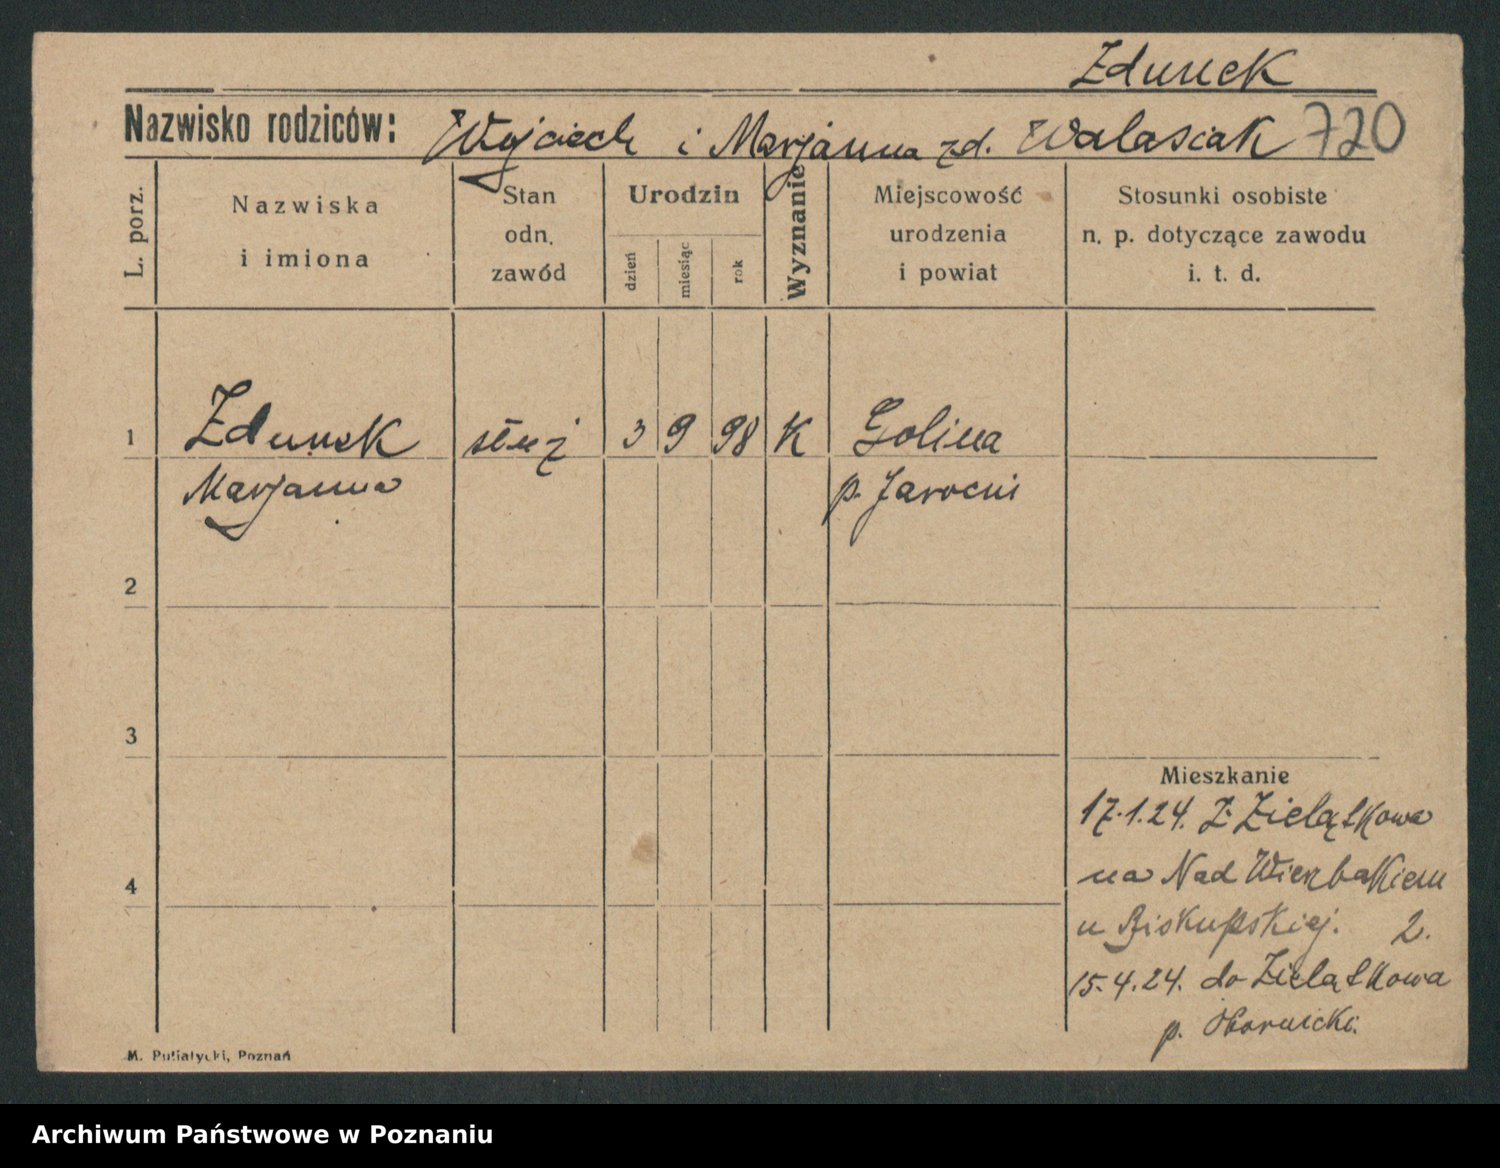 Zdunek
Nazwisko rodziców: Wojciech i Marjanna zd. Walasiak 720
L. porz.
Nazwiska
i imiona
Stan
odn.
zawód
Urodzin
dzień
miesiąc
rok
Wyznanie
Miejscowość
urodzenia
i powiat
Stosunki osobiste
n. p. dotyczące zawodu
i. t. d.
1 Zdunek służ 3 9 98 K Golina
Marjanna p. Jarocin
2
3
4
Mieszkanie
17.1.24. Z Zielątkowa
na Nad Wierzbakiem
u Biskupskiej. 2.
15.4.24. do Zielątkowa
p. Obornicki.
M. Putiatycki, Poznań
Archiwum Państwowe w Poznaniu